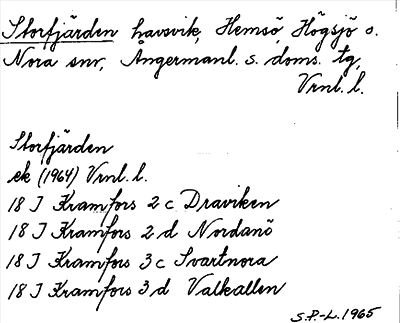 Storfjärden havsvik, Hemsö, Högsjö o.
Nora snr, Ångermanl. s. doms. tg,
Vrnl. l.
Storfjärden
ek (1964) Vrnl. l.
18 I Kramfors 2 c Draviken
18 I Kramfors 2 d Nordanö
18 I Kramfors 3 c Svartnora
18 I Kramfors 3 d Valkallen
S.P.-L. 1965